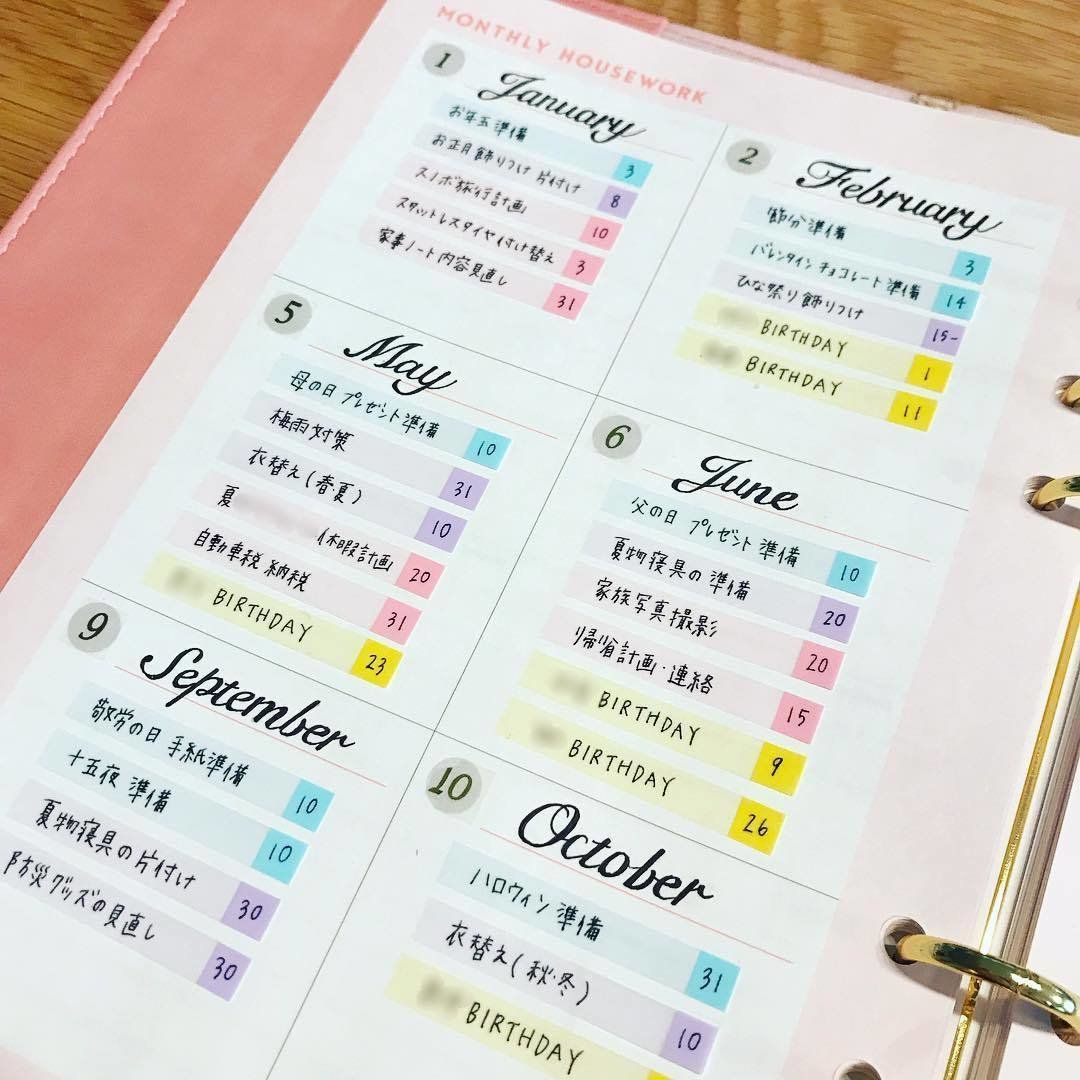 MONTHLY HOUSEWORK
1
January
お年玉準備 3
お正月飾りつけ 片付け 8
スノボ旅行計画 10
スタットレスタイヤ付け替え 3
家事ノート内容見直し 31
2
February
節分準備 3
バレンタインチョコレート準備 14
ひな祭り飾りつけ 15-
BIRTHDAY 1
BIRTHDAY 11
5
May
母の日 プレゼント準備 10
梅雨対策 31
衣替え(春・夏) 10
夏 休暇計画 20
自動車税 納税 31
BIRTHDAY 23
6
June
父の日 プレゼント準備 10
夏物寝具の準備 20
家族写真撮影 20
帰省計画・連絡 15
BIRTHDAY 9
BIRTHDAY 26
9
September
敬労の日 手紙準備 10
十五夜 準備 10
夏物寝具の片付け 30
防災グッズの見直し 30
10
October
ハロウィン準備 31
衣替え(秋・冬) 10
BIRTHDAY